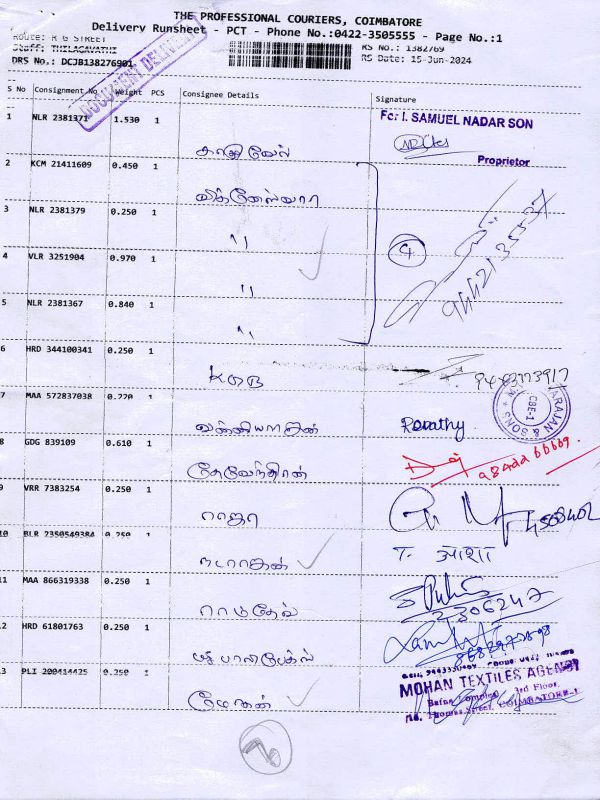 THE PROFESSIONAL COURIERS, COIMBATORE
Delivery Runsheet - PCT - Phone No.:0422-3505555 - Page No.:1
Route: R G STREET
Staff: THILAGAVATHI
RS No.: 1382769
DRS No.: DCJB138276901
RS Date: 15-Jun-2024
DOCUMENT DELIVERY
S No Consignment No Weight PCS Consignee Details Signature
1 NLR 2381371 1.530 1
For I. SAMUEL NADAR SON
Proprietor
2 KCM 21411609 0.450 1
விக்னேஸ்வரா
3 NLR 2381379 0.250 1
"
4 VLR 3251904 0.970 1
"
5 NLR 2381367 0.840 1
"
4
6 HRD 344100341 0.250 1
7 MAA 572837038 0.220 1
Revathy
NATARAJAN & SONS
CBE-1
8 GDG 839109 0.610 1
தேவேந்திரன்
9 VRR 7383254 0.250 1
ராஜா
10 BLR 2350549384 0.250 1
நடராஜன்
T. आशा
11 MAA 866319338 0.250 1
ராமதேவ்
12 HRD 61801763 0.250 1
13 PLI 200414425 0.250 1
மோகன்
MOHAN TEXTILES AGENCY
Bafna Complex, 3rd Floor,
Thomas Street, COIMBATORE-1
2